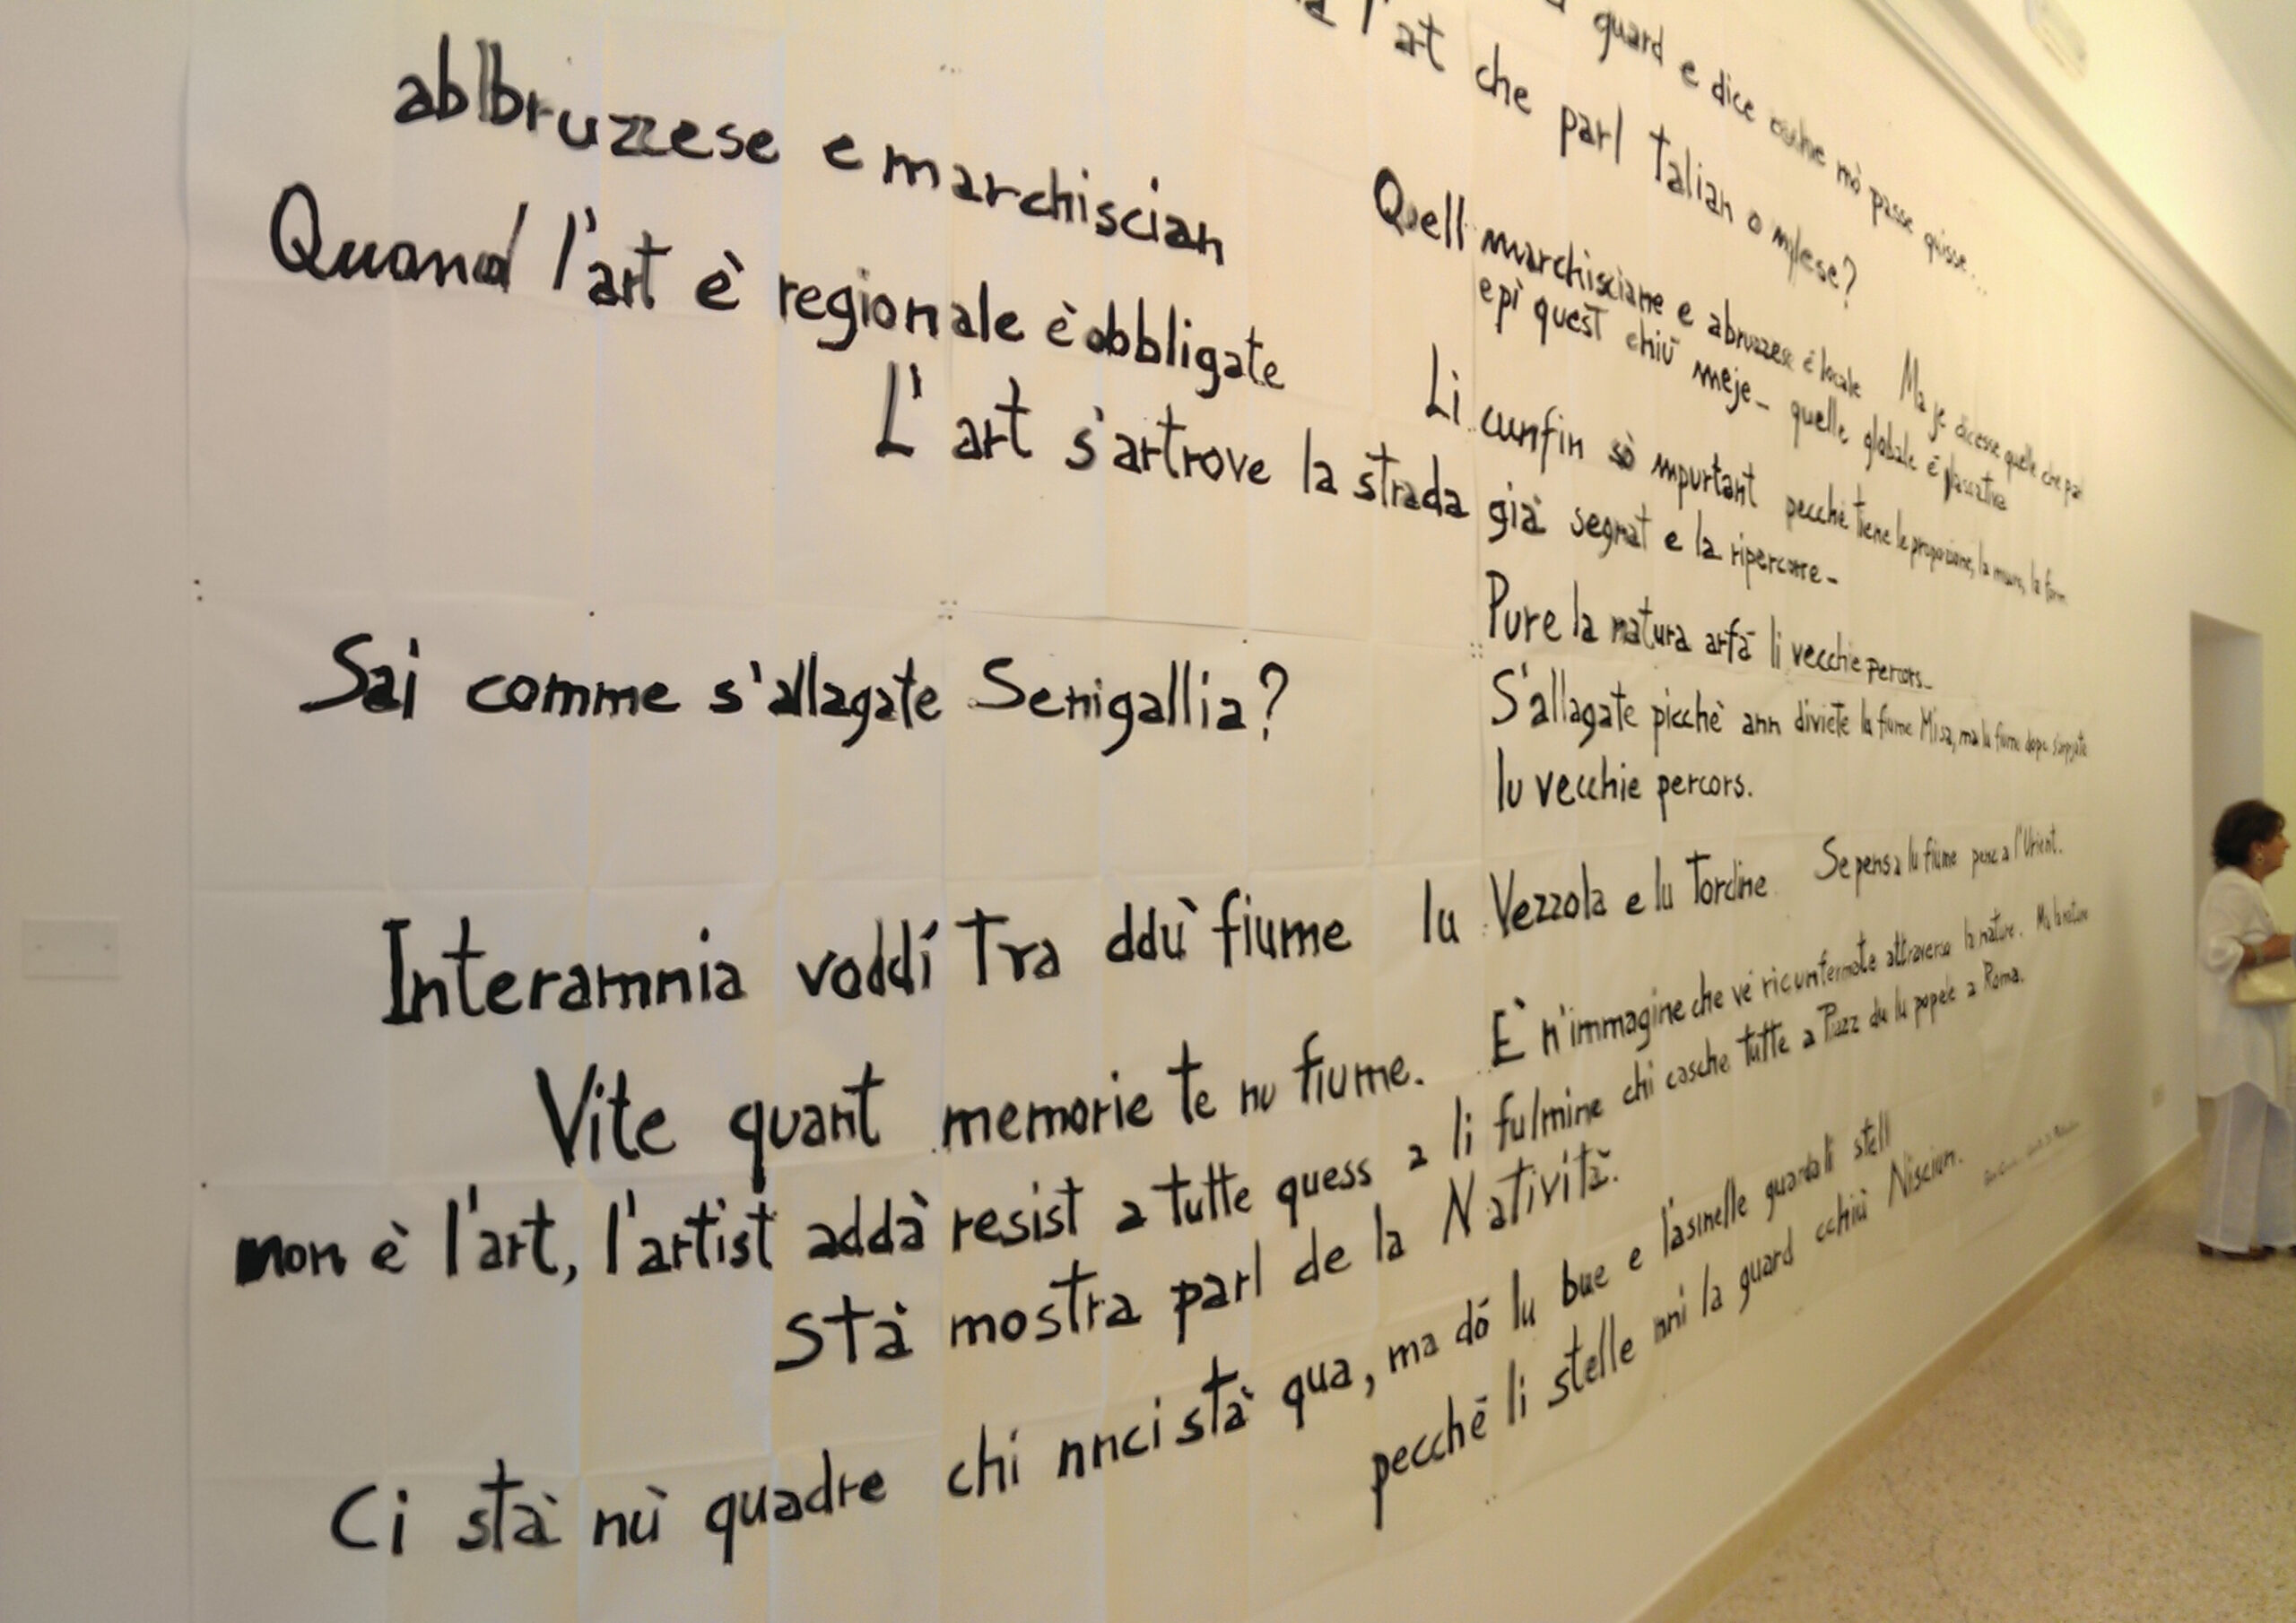 guard e dice mò passe quisse...
l'at che parl talian o mylese?
abbruzzese e marchiscian
Quell marchisciane e abruzzese è locale Ma je dicesse quelle che par
Quand l'art è regionale è obbligate
epì quest chiù meje - quelle globale è
Li cunfin sò mpurtant pecchè tiene le proporzione, la misure, la form
L'art s'artrove la strada già segnat e la ripercorre -
Pure la natura arfà li vecchie percors -
Sai comme s'allagate Senigallia? S'allagate picchè ann diviete lu fiume Misa, ma lu fiume dope
lu vecchie percors.
Interamnia voddì Tra ddù fiume lu Vezzola e lu Tordine. Se pensa lu fiume pense a l'Urient.
Vite quant memorie te nu fiume. È n'immagine che vé ricunfermate attraverso la nature. Ma la nature
non è l'art, l'artist addà resist a tutte quess a li fulmine chi casche tutte a Piazz du lu popele a Roma.
Stà mostra parl de la Natività.
Ci stà nù quadre chi nnci stà qua, ma dó lu bue e l'asinelle guarda li stell
pecchè li stelle nni la guard cchiù Nisciun.